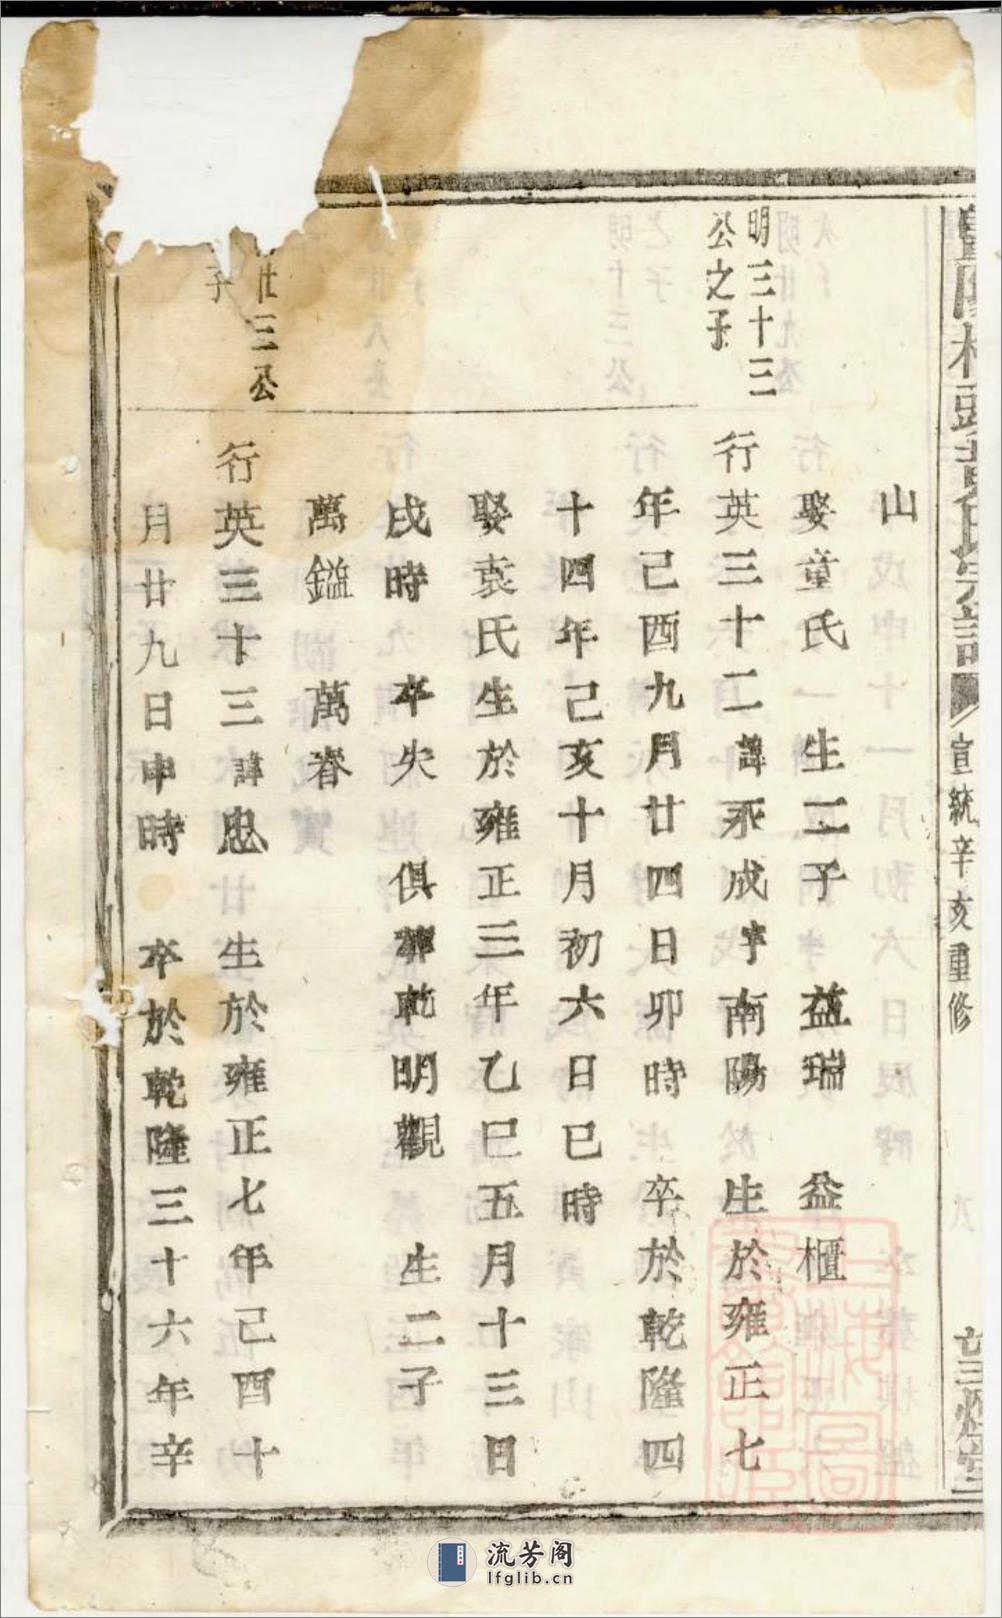 宣統辛亥重修
山
娶童氏 生二子 益瑞 益櫃
明三十三
公之子
行英三十二諱永成字南陽 生於雍正七
年己酉九月廿四日卯時 卒於乾隆四
十四年己亥十月初六日巳時
娶袁氏生於雍正三年乙巳五月十三日
戌時 卒失 俱葬乾明觀 生二子
萬鎰 萬春
廿三公
子
行英三十三諱忠 生於雍正七年己酉十
月廿九日申時 卒於乾隆三十六年辛
流芳阁
lfglib.cn